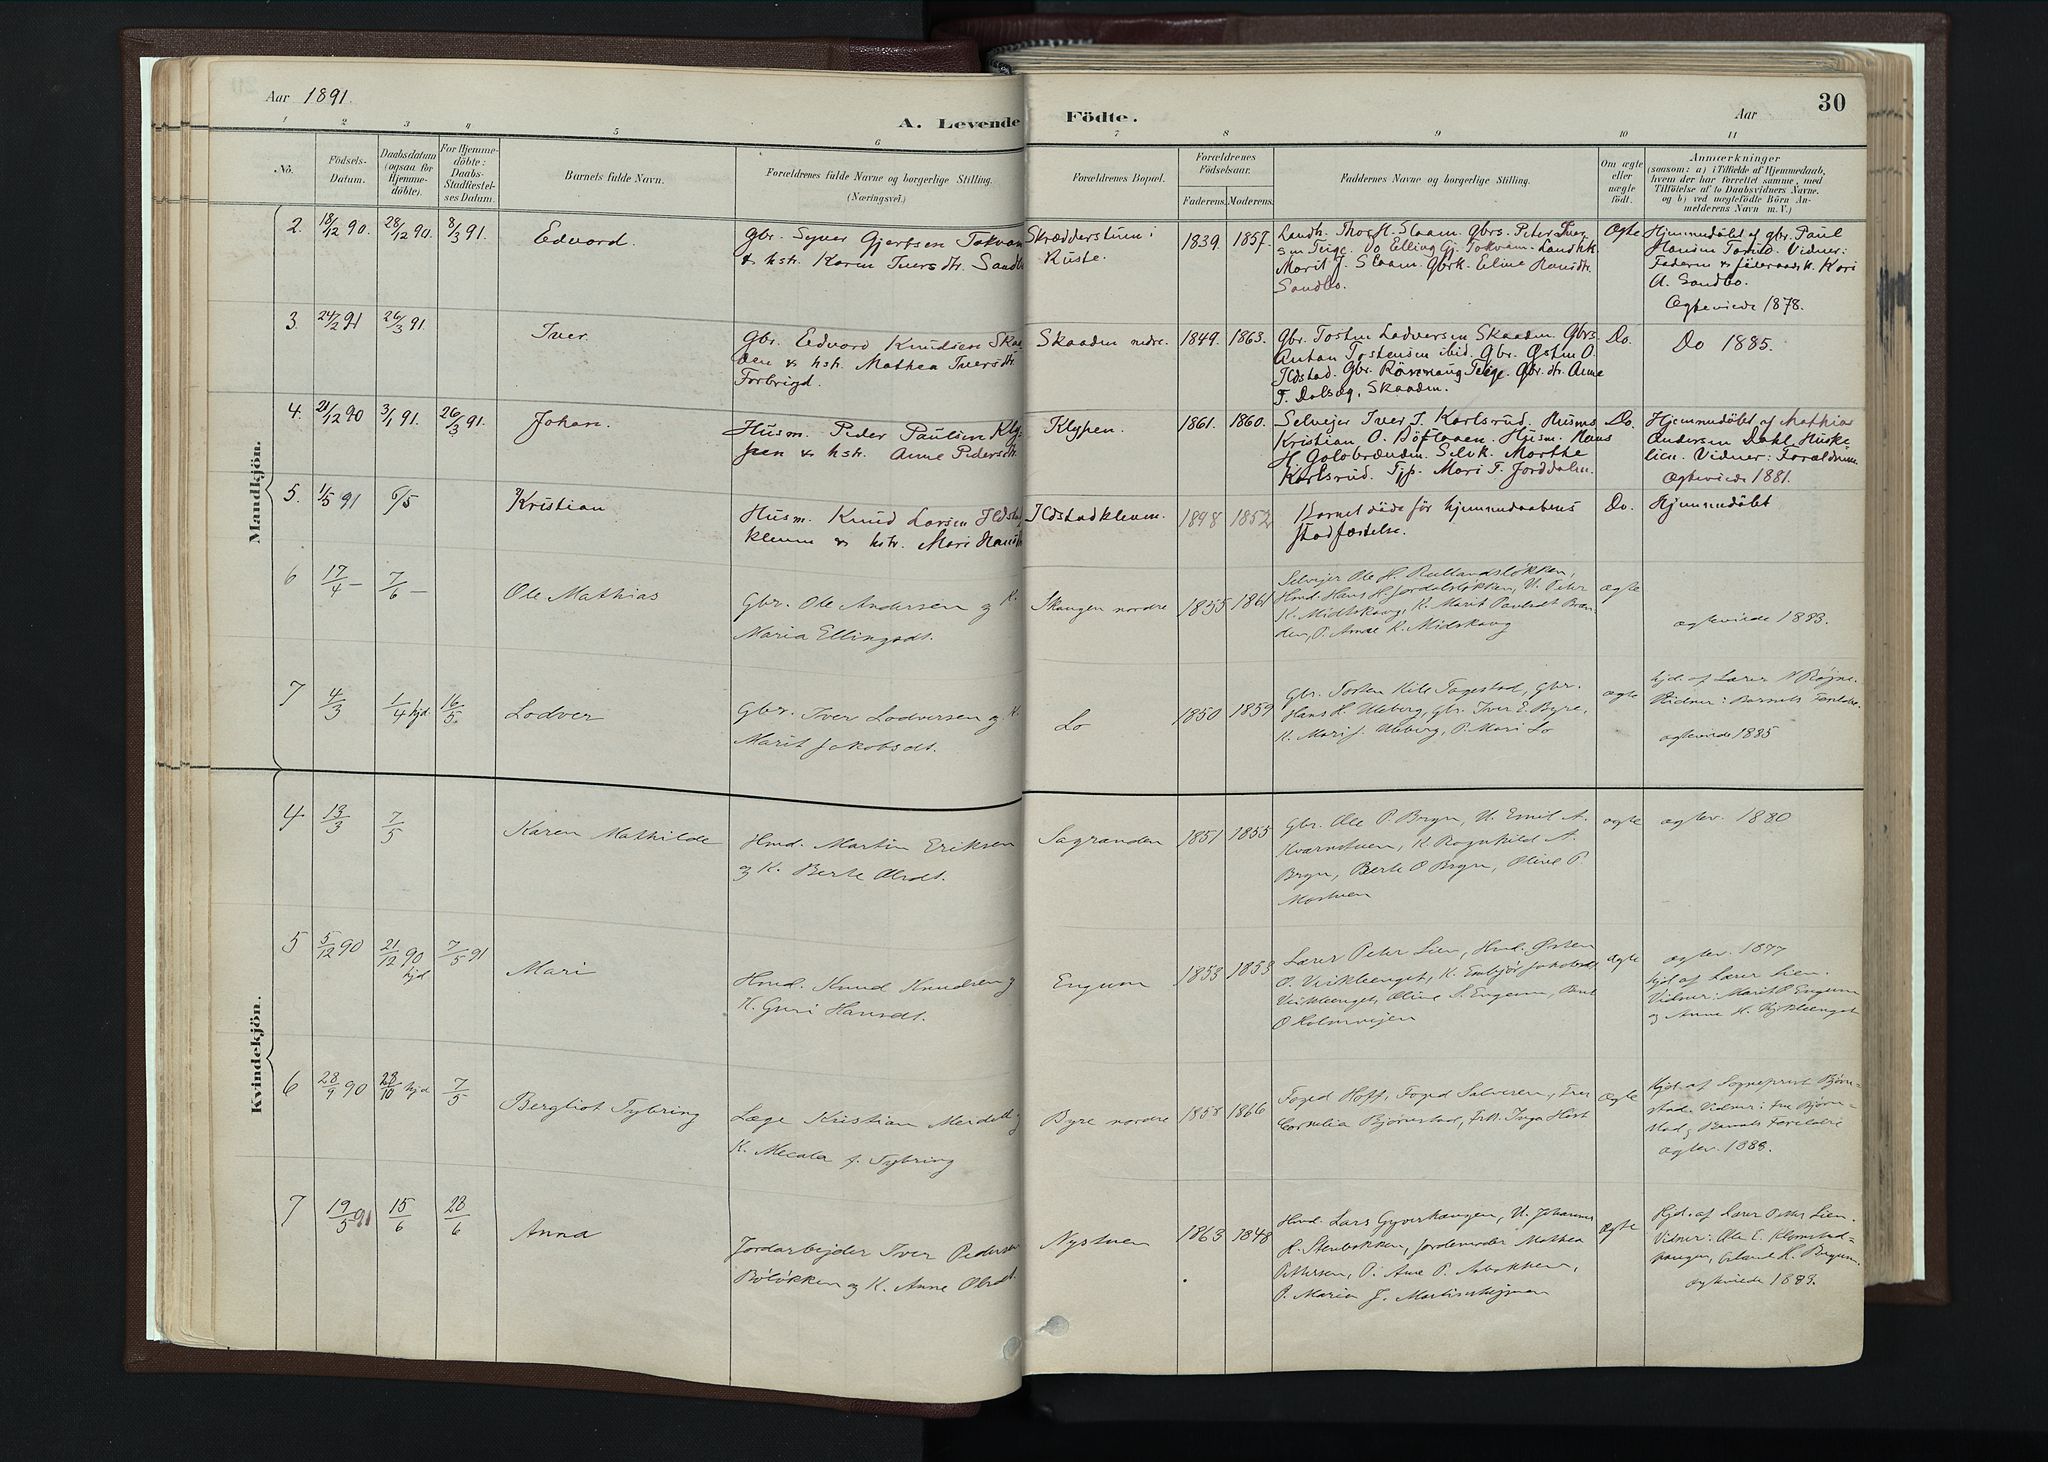 Aar 1891.
A. Levende Födte.
Aar
30
1 2 3 4 5 6 7 8 9 10 11
No.
Födsels-
Datum.
Daabsdatum
(ogsaa for
Hjemme-
döbte).
For Hjemme-
döbte:
Daabs-
Stadfæstel-
ses Datum.
Barnets fulde Navn.
Forældrenes fulde Navne og borgerlige Stilling.
(Næringsvei.)
Forældrenes Bopæl.
Forældrenes
Födselsaar.
Faderens. Moderens.
Faddernes Navne og borgerlige Stilling.
Om ægte
eller
uægte
födt.
Anmærkninger
(saasom: a) i Tilfælde af Hjemmedaab,
hvem der har forrettet samme, med
Tilföielse af to Daabsvidners Navne,
og b) ved uægtefödte Börn An-
melderens Navn m. V.)
Mandkjön.
2. 18/12 90. 28/12 90. 8/3 91. Edvard.
Gbr. Syver Gjertsen Tokvam
& hstr. Karen Iversdtr. Sandbo
Skrædderstuen i
Ruste.
1839. 1857.
Elling Gj. Tokvam. Landhk.
Marit J. Slaam. Gbrk. Eline Hansdtr.
Sandbo.
Ægte
Hjemmedøbt af gbr. Paul
Hansen Vidner:
Faderen & føderaadsk. Kari
A. Sandbo.
Ægteviede 1878.
3. 24/2 91 26/3 91. Iver.
Gbr. Edvard Knudsen Skaa-
den & hstr. Mathea Iversdtr.
Forbrigd.
Skaaden nedre. 1849. 1863.
Gbr. Tosten Lodversen Skaaden. Gbrs.
Anton Tostensen ibid. Gbr. Østen O.
Ildstad. Gbr. Rønnaug Teige. Gbr. dtr. Anne
T. Dalseg, Skaaden.
Do.
Do 1885.
4. 21/12 90 3/1 91. 26/3 91. Johan.
Husm. Peder Paulsen Kly-
pen & hstr. Anne Pedersdtr.
Klypen. 1861. 1860.
Selvejer Iver J. Karlsrud. Husms
Kristian O. Husm. Hans
H. Golobrænden. Selvk. Marthe
Karlsrud. Tjp. Mari T. Jorddalen.
Do.
Hjemmedøbt af Mathias
Andersen Dahl, Huske-
lien. Vidner: Forældrene.
Ægteviede 1881.
5. 1/5 91 6/5 Kristian
Husm. Knud Larsen Ildstad
klemm & hstr. Mari Hansdtr.
Ildstadklemm. 1848 1852
Barnet døde før hjemmedaabens
stadfæstelse.
Do. Hjemmedøbt
6 17/4 – 7/6 – Ole Mathias
Gbr. Ole Andersen og K.
Maria Ellingsdt.
Skaugen nordre 1855 1861
Selvejer Ole H. Rullandsløkken,
Hmd. Hans H. Jordalsløkken, U. Peter
K. Midtskaug, K. Marit Paulsdt Bra-
den, P. Anne K. Midskaug
ægte
ægteviede 1883.
7 4/3 1/4 hjd. 16/5. Lodver
Gbr. Iver Lodversen og K.
Marit Jakobsdt.
Lo 1850 1859
Gbr. Tosten Kile Tagestad, Gbr.
Hans H. Uleberg, Gbr. Iver E. Byre,
K. Mari J. Uleberg, P. Mari Lo
ægte
hjd. af Lærer
Vidner: Barnets Foreldre.
ægteviede 1885
Kvindekjön.
4 13/3 7/5 Karen Mathilde
Hmd. Martin Eriksen
og K. Berte Olsdt.
Sagranden 1851 1855
Gbr. Ole P. Bryn, U. Emil A.
Kværnstuen, K. Ragnhild A.
Bryn, Berte O Bryn, Oline P.
Mostuen
ægte ægtev. 1880
5 5/12 90 21/12 90 hjd 7/5 91 Mari
Hmd. Knud Knudsen og
K. Guri Hansdt.
Engum 1853 1853
Lærer Peter Lien, Hmd. Østen
O. Vikleenget, K. Embjør Jakobsdt.
Vikleenget, Oline S. Engum,
O Holmvejen
ægte
ægtev. 1877
hjd af Lærer Lien.
Vidner: Marit O Engum
og Anne H. Vikleenget
6 28/9 90 28/10 hjd 7/5 Bergliot Tybring
Læge Kristian Meidell og
K. Mecala f. Tybring
Byre nordre 1858 1866
Foged Hoff, Foged Salvesen, Frue
Cornelia Bjørnstad, Frk. Inga Hoff
Ægte
hjd. af Sogneprest Bjørn-
stad. Vidner: Fru Bjørn-
stad, Barnets Foreldre
ægtev. 1888.
7 19/5 91 15/6 28/6 Anna
Jordarbejder Iver Pedersen
Bøløkken og K. Anne Olsdt.
Nystuen 1863 1848
Hmd. Lars Gyverhaugen, U. Johannes
H. Stenbakken, Jordemoder Mathea
Pettersen, P. Ane P.
P. Maria J.
Ægte
Hjd. af Lærer Petter Lien.
Vidner: Ole E. Klomstad-
haugen, Erland K. Engum.
ægteviede 1889.